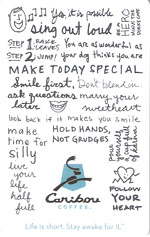 Yes, it is possible
sing out loud
HERO
STEP 1
RAKE
LEAVES
You are as wonderful as
STEP 2
JUMP!
your dog thinks you are
MAKE TODAY SPECIAL
Smile first, Don't blend in
ask questions
marry your
sweetheart
later
look back if it makes you smile
make
time for
silly
HOLD HANDS,
NOT GRUDGES
live
your
life
half
full
Caribou
COFFEE
FOLLOW
YOUR
HEART
Life is short. Stay awake for it.